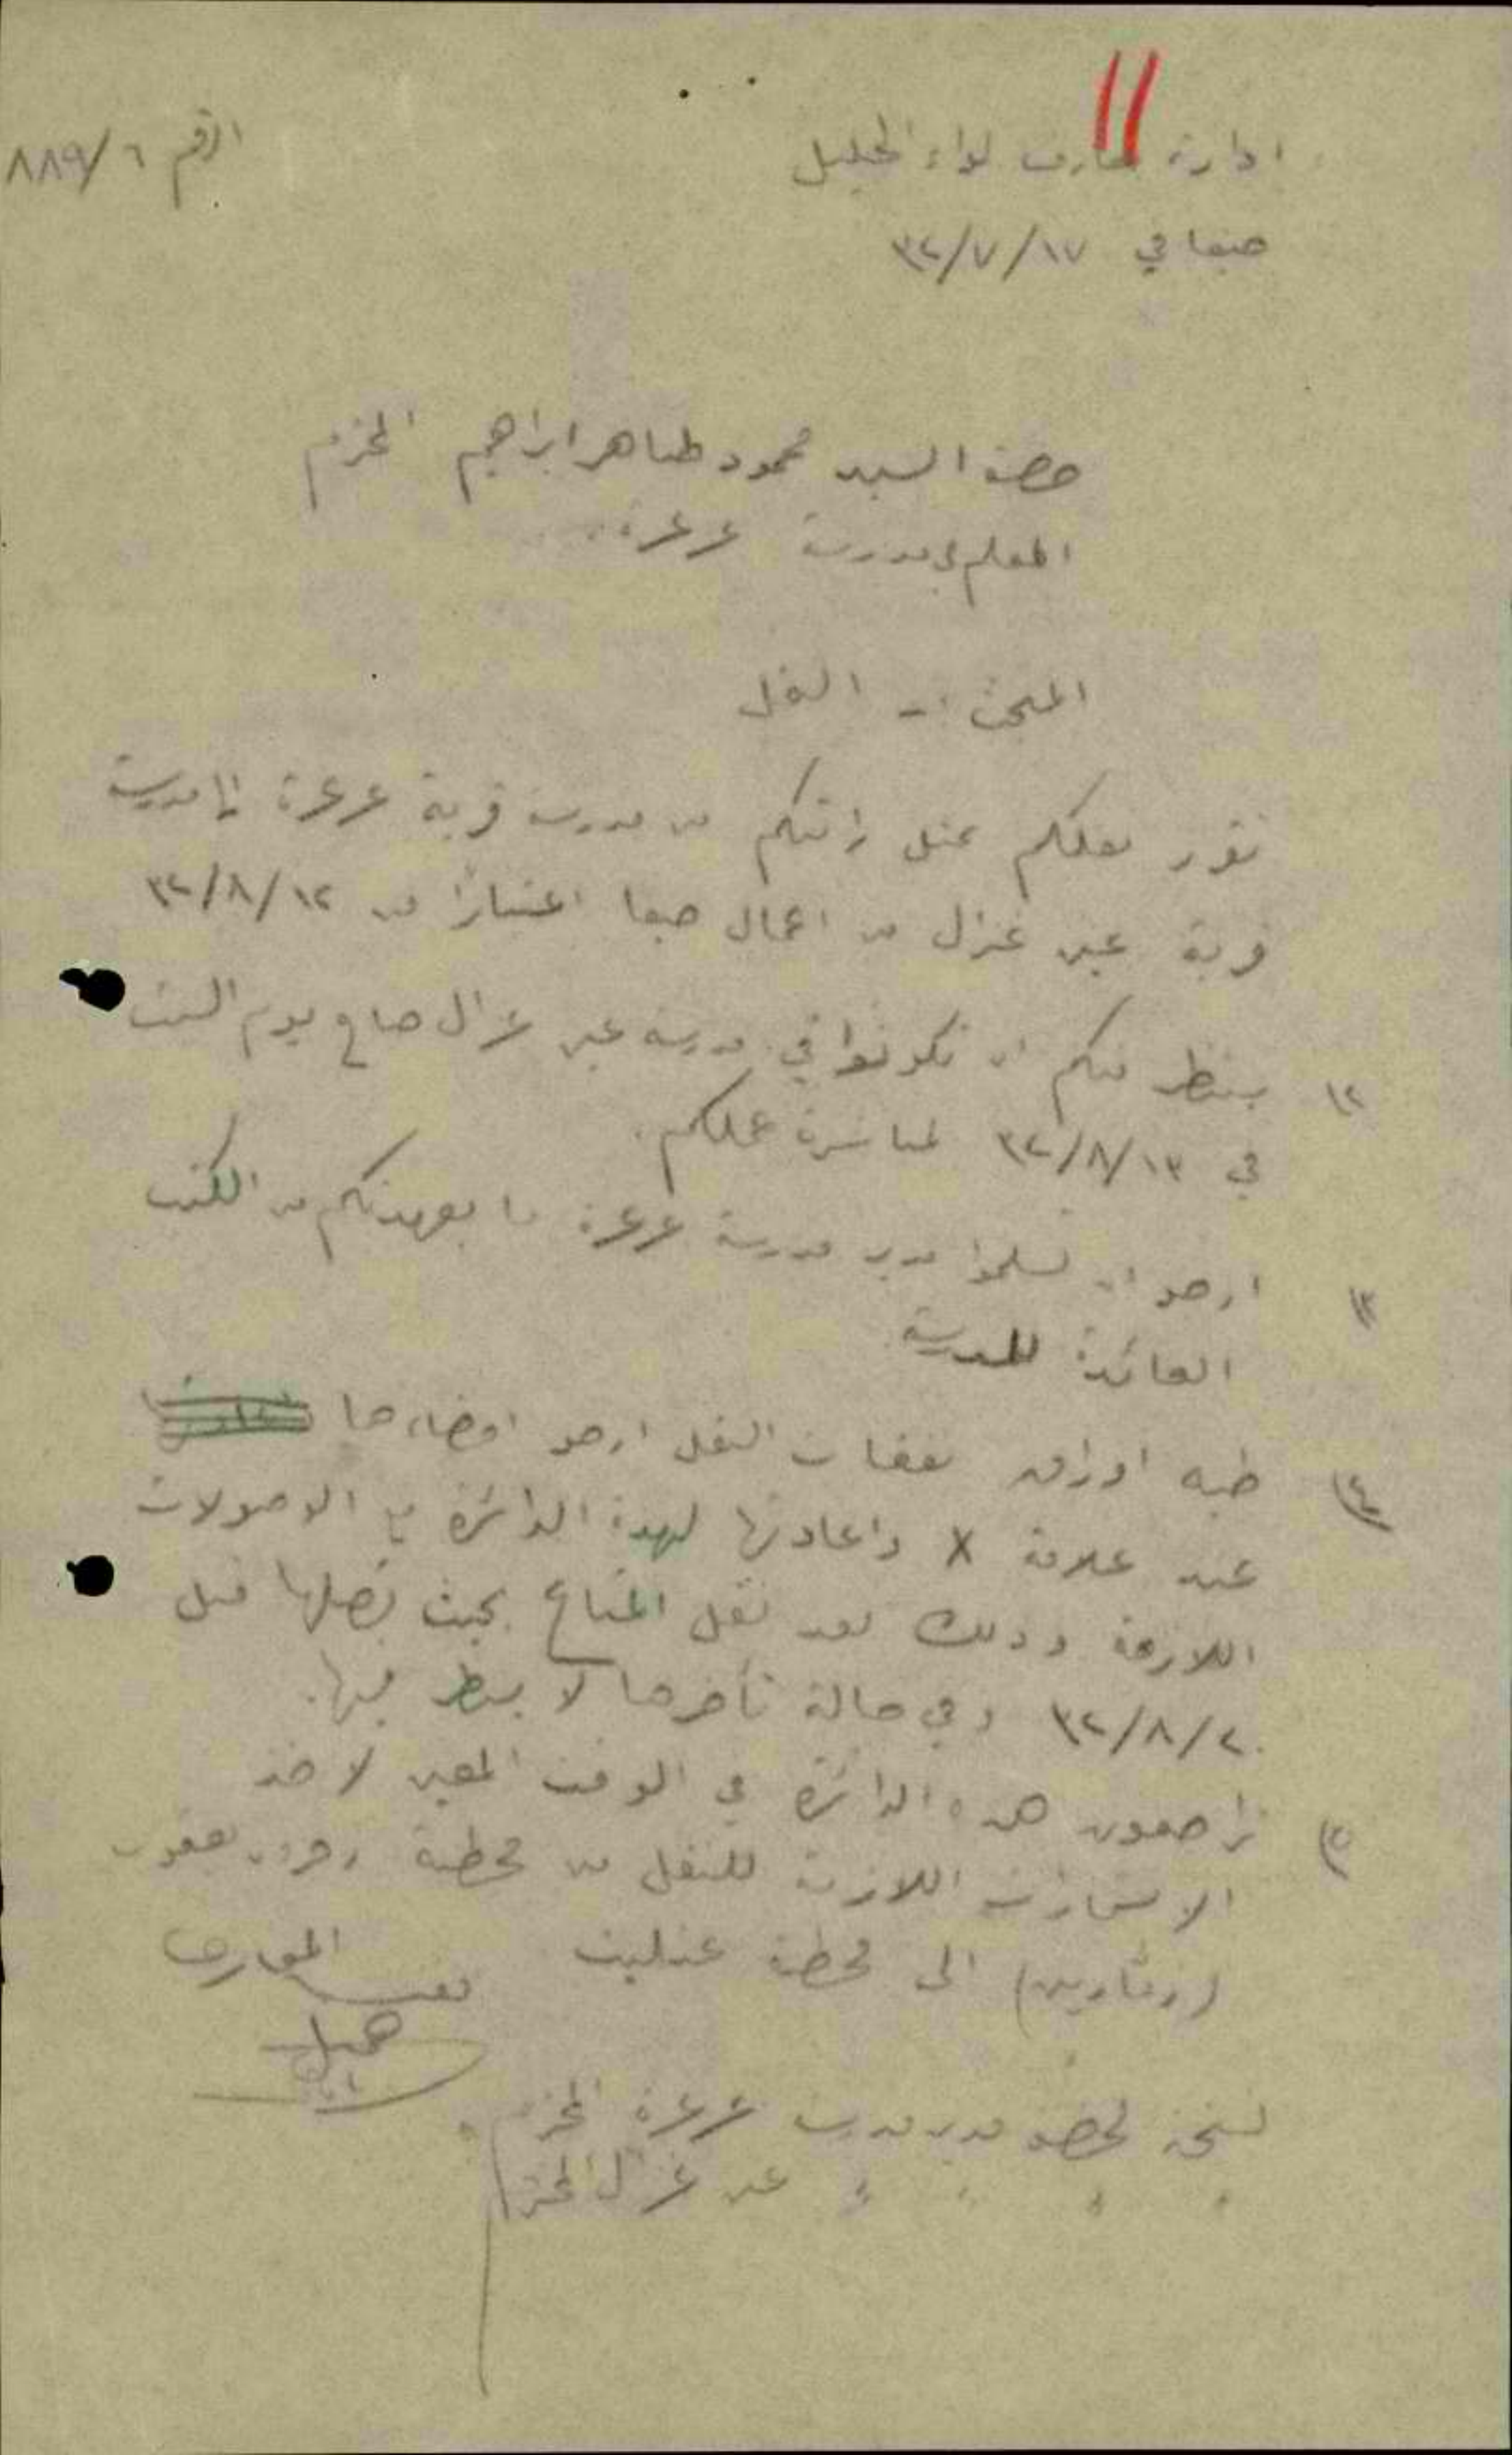 ادارة معارف لواء الجليل
الرقم ٨٨٩/٦
حيفا في ٣٢/٧/١٧
حضرة السيد محمود طاهر ابراهيم المحترم
المعلم في مدرسة عرعرة
المبحث :- النقل
تقرر نقلكم بمثل راتبكم من مدرسة قرية عرعرة الى مدرسة
قرية عين غزال من اعمال حيفا اعتباراً من ٣٢/٨/١٢
٢) ينتظر منكم ان تكونوا في مدرسة عين غزال صباح يوم السبت
في ٣٢/٨/١٣ لمباشرة عملكم.
٣) ارجو ان تسلموا مدير مدرسة عرعرة ما بعهدتكم من الكتب
العائدة للمدرسة
٤) طيه اوراق نفقات النقل ارجو امضاءها
عند علامة X واعادتها لهذه الدائرة مع الوصولات
اللازمة وذلك بعد نقل المتاع بحيث تصلها قبل
٣٢/٨/٢٠ وفي حالة تأخرها لا ينظر فيها.
٥) تراجعون هذه الدائرة في الوقت المعين لاخذ
الاستمارات اللازمة للنقل من محطة زخرون يعقوب
(زمارين) الى محطة عتليت
مفتش المعارف
نسخة لحضرة مدير مدرسة عرعرة المحترم
" " " " عين غزال المحترم